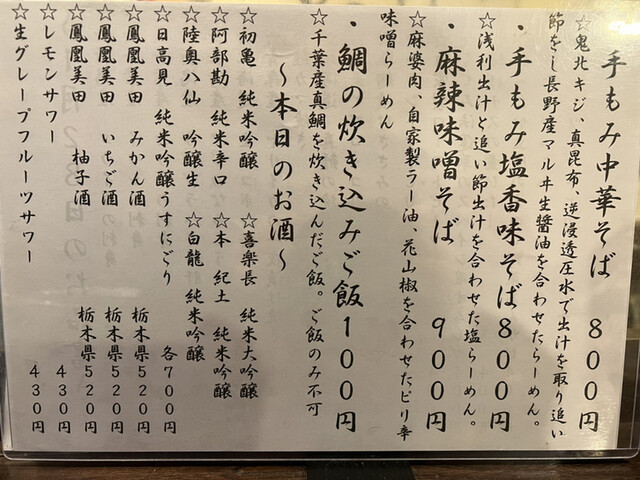 手もみ中華そば 800円
☆鬼北キジ、真昆布、逆浸透圧水で出汁を取り追い
節をし長野産マルヰ生醤油を合わせたらーめん。
・手もみ塩香味そば800円
☆浅利出汁と追い節出汁を合わせた塩らーめん。
・麻辣味噌そば 900円
☆麻婆肉、自家製ラー油、花山椒を合わせたピリ辛
味噌らーめん
・鯛の炊き込みご飯100円
☆千葉産真鯛を炊き込んだご飯。ご飯のみ不可
～本日のお酒～
☆初亀 純米吟醸 ☆喜楽長 純米大吟醸
☆阿部勘 純米辛口 ☆本 紀土 純米吟醸
☆陸奥八仙 吟醸生 ☆白龍 純米吟醸
☆日高見 純米吟醸うすにごり 各700円
☆鳳凰美田 みかん酒 栃木県520円
☆鳳凰美田 いちご酒 栃木県520円
☆鳳凰美田 柚子酒 栃木県520円
☆レモンサワー 430円
☆生グレープフルーツサワー 430円